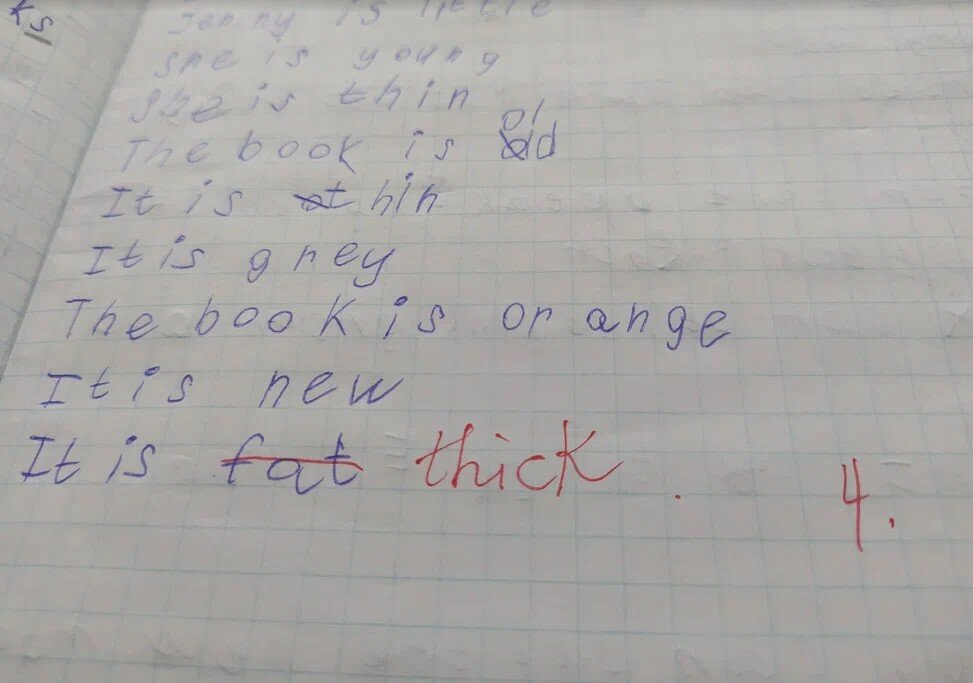 ks
Jenny is little
She is young
She is thin
The book is old
It is thin
It is grey
The book is orange
It is new
It is fat thick.
4.